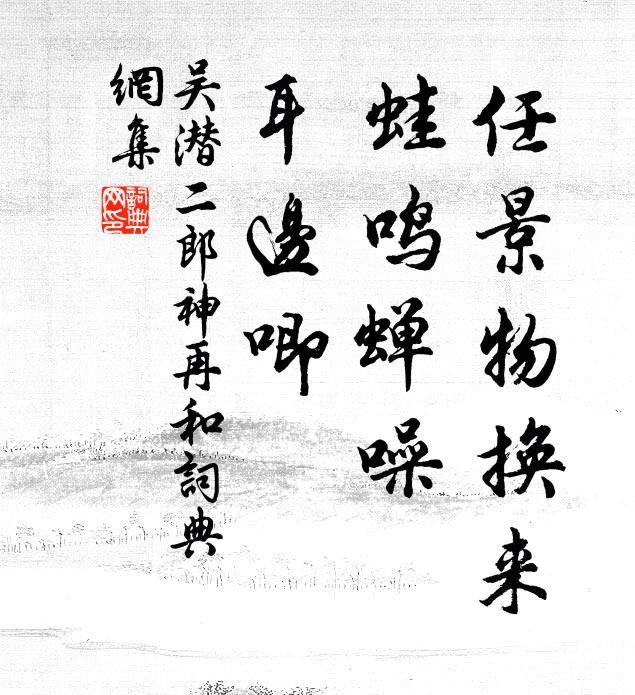 任景物换来
蛙鸣蝉噪
耳邊唧
吴潜二郎神再和詞典
網集
詞典
网印